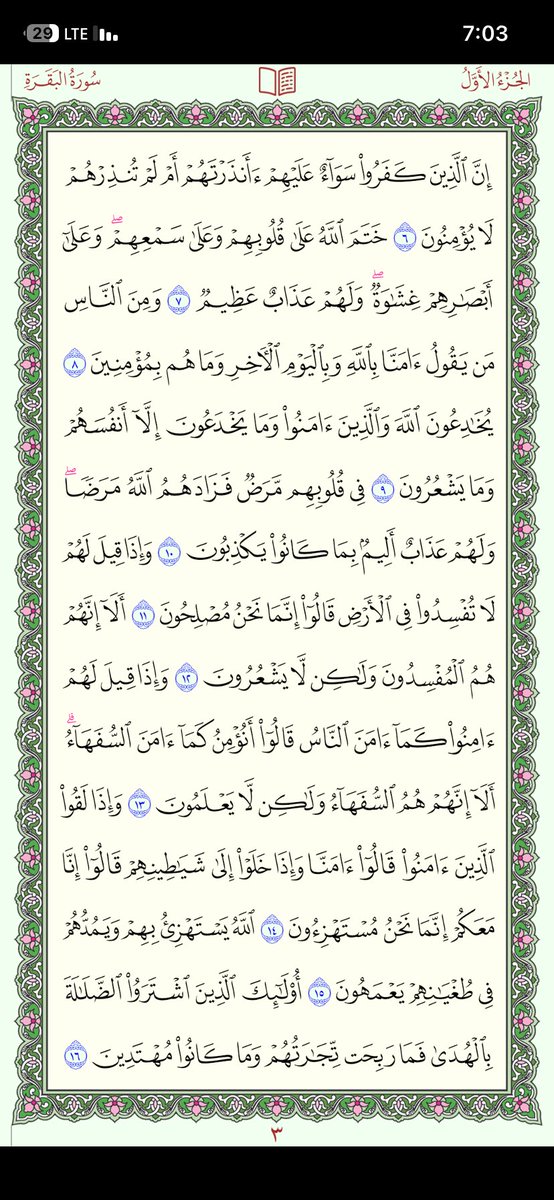 29 LTE 7:03
الجُزْءُ الأَوَّلُ سُورَةُ البَقَرَةِ
إِنَّ ٱلَّذِينَ كَفَرُوا۟ سَوَآءٌ عَلَيْهِمْ ءَأَنذَرْتَهُمْ أَمْ لَمْ تُنذِرْهُمْ
لَا يُؤْمِنُونَ ٦ خَتَمَ ٱللَّهُ عَلَىٰ قُلُوبِهِمْ وَعَلَىٰ سَمْعِهِمْ ۖ وَعَلَىٰٓ
أَبْصَـٰرِهِمْ غِشَـٰوَةٌ ۖ وَلَهُمْ عَذَابٌ عَظِيمٌ ٧ وَمِنَ ٱلنَّاسِ
مَن يَقُولُ ءَامَنَّا بِٱللَّهِ وَبِٱلْيَوْمِ ٱلْـَٔاخِرِ وَمَا هُم بِمُؤْمِنِينَ ٨
يُخَـٰدِعُونَ ٱللَّهَ وَٱلَّذِينَ ءَامَنُوا۟ وَمَا يَخْدَعُونَ إِلَّآ أَنفُسَهُمْ
وَمَا يَشْعُرُونَ ٩ فِى قُلُوبِهِم مَّرَضٌ فَزَادَهُمُ ٱللَّهُ مَرَضًا ۖ
وَلَهُمْ عَذَابٌ أَلِيمٌۢ بِمَا كَانُوا۟ يَكْذِبُونَ ١٠ وَإِذَا قِيلَ لَهُمْ
لَا تُفْسِدُوا۟ فِى ٱلْأَرْضِ قَالُوٓا۟ إِنَّمَا نَحْنُ مُصْلِحُونَ ١١ أَلَآ إِنَّهُمْ
هُمُ ٱلْمُفْسِدُونَ وَلَـٰكِن لَّا يَشْعُرُونَ ١٢ وَإِذَا قِيلَ لَهُمْ
ءَامِنُوا۟ كَمَآ ءَامَنَ ٱلنَّاسُ قَالُوٓا۟ أَنُؤْمِنُ كَمَآ ءَامَنَ ٱلسُّفَهَآءُ ۗ
أَلَآ إِنَّهُمْ هُمُ ٱلسُّفَهَآءُ وَلَـٰكِن لَّا يَعْلَمُونَ ١٣ وَإِذَا لَقُوا۟
ٱلَّذِينَ ءَامَنُوا۟ قَالُوٓا۟ ءَامَنَّا وَإِذَا خَلَوْا۟ إِلَىٰ شَيَـٰطِينِهِمْ قَالُوٓا۟ إِنَّا
مَعَكُمْ إِنَّمَا نَحْنُ مُسْتَهْزِءُونَ ١٤ ٱللَّهُ يَسْتَهْزِئُ بِهِمْ وَيَمُدُّهُمْ
فِى طُغْيَـٰنِهِمْ يَعْمَهُونَ ١٥ أُو۟لَـٰٓئِكَ ٱلَّذِينَ ٱشْتَرَوُا۟ ٱلضَّلَـٰلَةَ
بِٱلْهُدَىٰ فَمَا رَبِحَت تِّجَـٰرَتُهُمْ وَمَا كَانُوا۟ مُهْتَدِينَ ١٦
٣